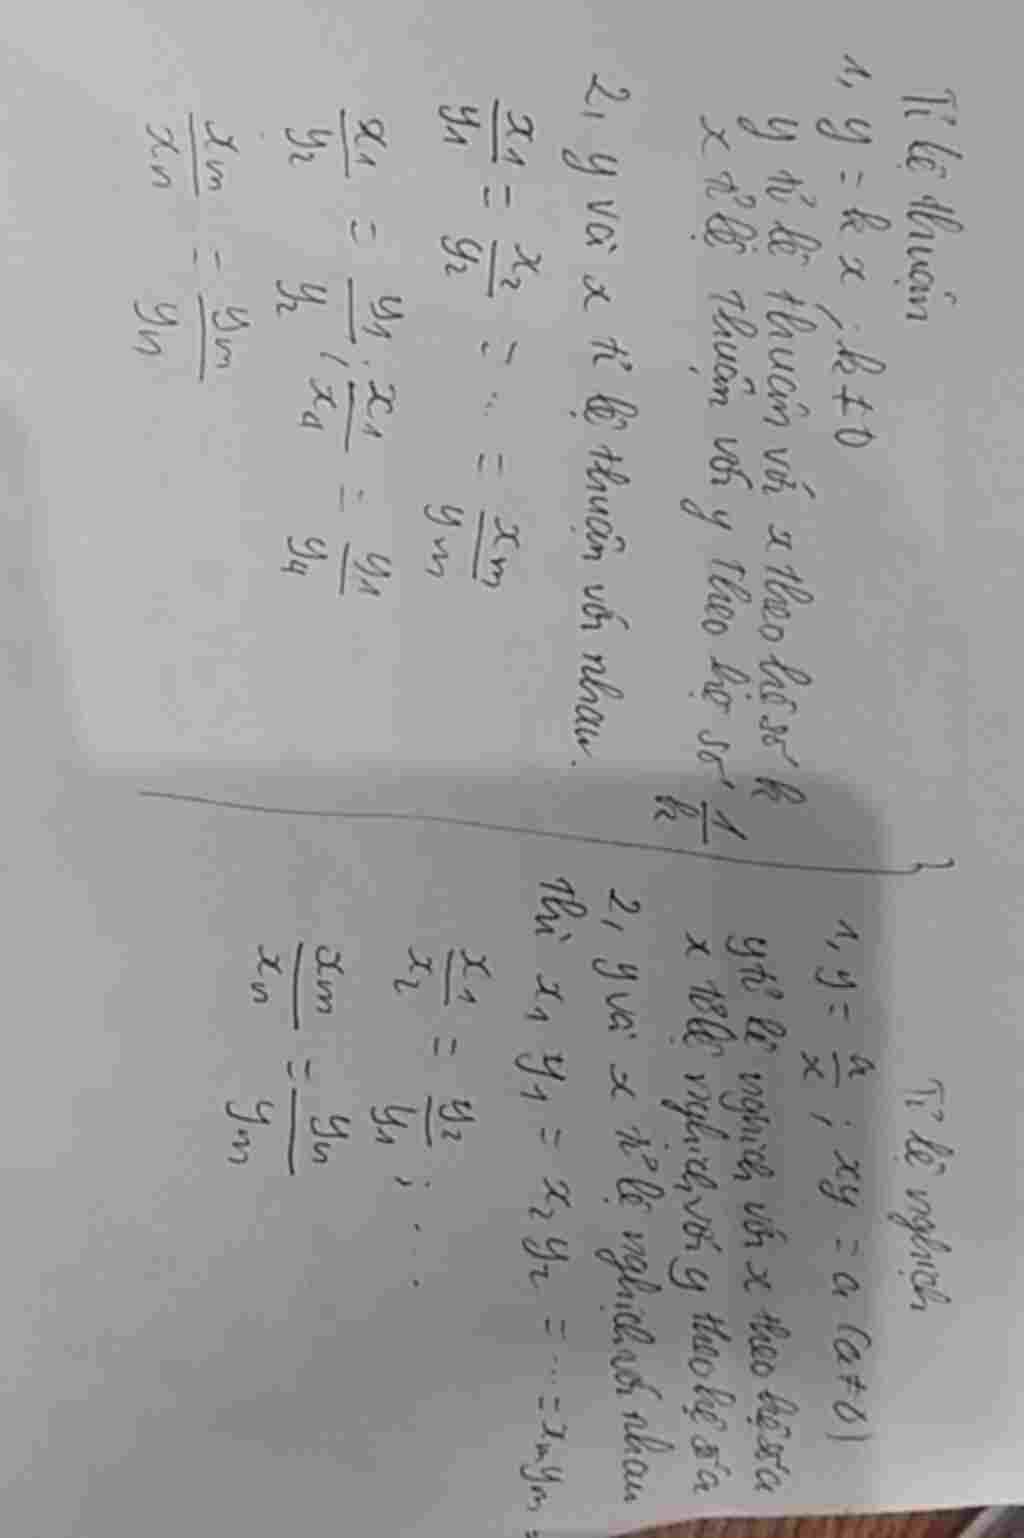 Tỉ lệ thuận
1, y = kx ; k ≠ 0
y tỉ lệ thuận với x theo hệ số k
x tỉ lệ thuận với y theo hệ số 1/k
2, y và x tỉ lệ thuận với nhau.
x1/y1 = x2/y2 = ... = xm/ym
x1/y2 = y1/y2 ; x1/x4 = y1/y4
xm/xn = ym/yn
Tỉ lệ nghịch
1, y = a/x ; xy = a (a ≠ 0)
y tỉ lệ nghịch với x theo hệ số a
x tỉ lệ nghịch với y theo hệ số a
2, y và x tỉ lệ nghịch với nhau
thì x1 y1 = x2 y2 = ... = xm ym =
x1/x2 = y2/y1 ; ...
xm/xn = yn/ym